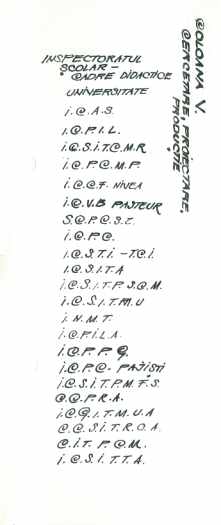 COLOANA V.
CERCETARE, PROIECTARE,
PRODUCTIE
INSPECTORATUL
SCOLAR –
• CADRE DIDACTICE
UNIVERSITATE
I.C.A.S.
I.C.P.I.L.
I.C.S.I.T.C.M.R
I.C.P.C.M.P.
I.C.C.F. NIVEA
I.C.V.B PASTEUR
S.C.P.C.S.E.
I.C.P.C.
I.C.S.T.I. – T.C.I.
I.C.S.I.T.A
I.C.S.I.T.P.S.C.M.
I.C.S.I.T.M.U
I.N.M.T.
I.C.P.I.L.A.
I.C.P.P.G.
I.C.P.C- PAJISTI
I.C.S.I.T.P.M.F.S.
C.C.P.R.A.
I.C.S.I.T.M.U.A
C.C.S.I.T.R.O.A.
C.I.T.P.C.M.
I.C.S.I.T.T.A.